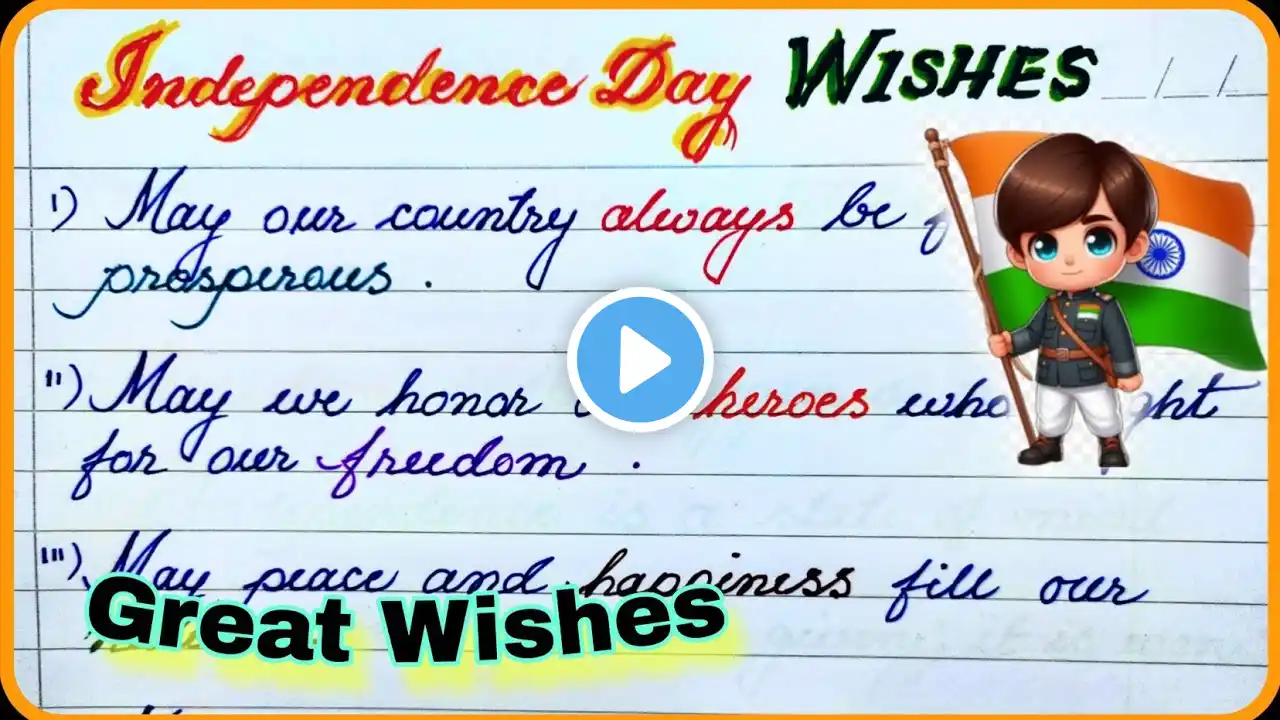 Independence Day WISHES _/_/_
i) May our country always be
prosperous .
ii) May we honor heroes who
for our freedom .
iii) May peace and happiness fill our
Great Wishes